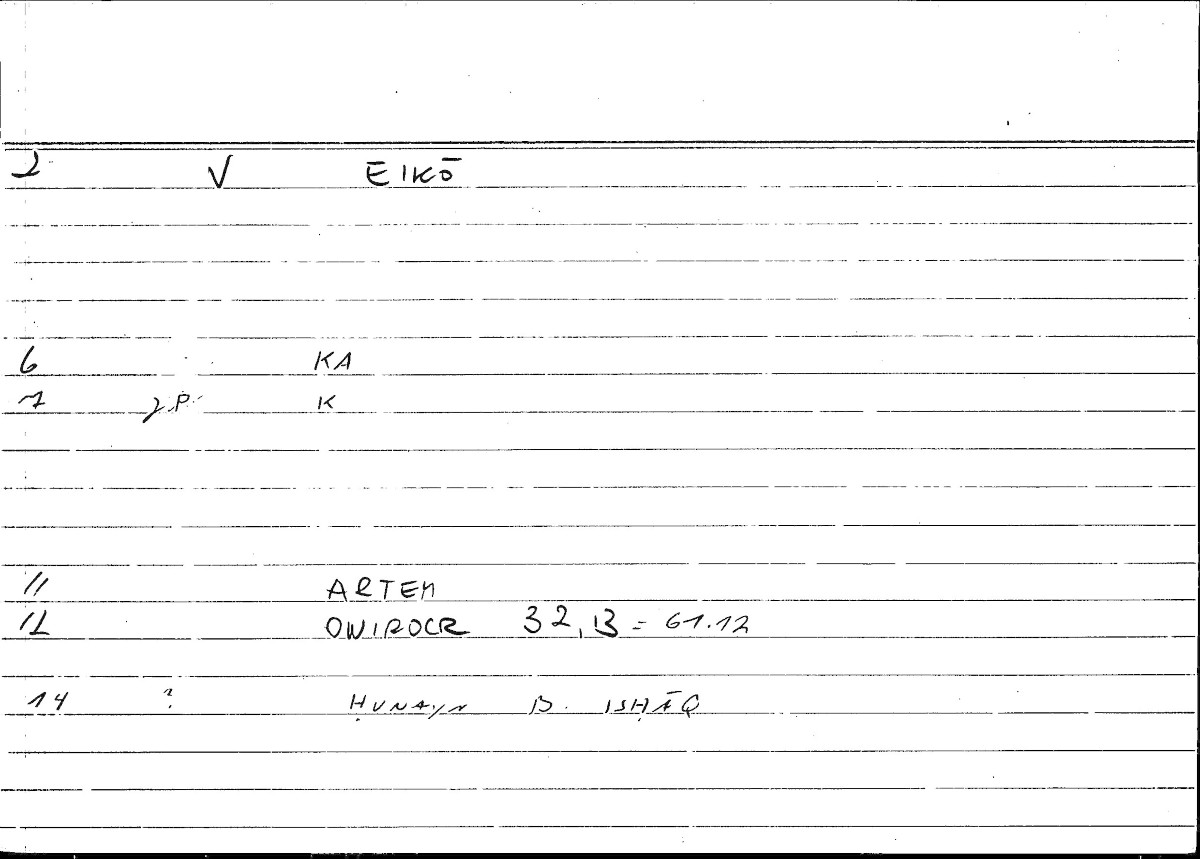 2 V EIKŌ
6 KA
7 J.P. K
11 ARTEM
12 ONIROCR 32,13 = 61.12
14 ? ḤUNAYN B. ISḤĀQ